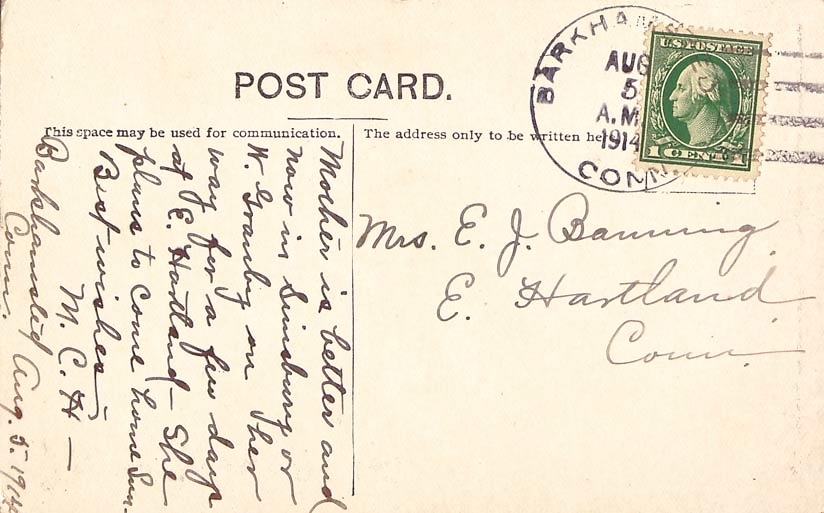 POST CARD.
This space may be used for communication.
The address only to be written he
BARKHAM
AUG
5
A.M.
1914
CONN.
U.S. POSTAGE
1 CENT 1
Mrs. E. J. Banning
E. Hartland
Conn.
Mother is better and
now in Simsbury or
W. Granby on her
way for a few days
at E. Hartland - She
plans to come home Sun.
Best wishes -
M. C. H -
Barkhamsted Aug. 5. 1914
Conn.